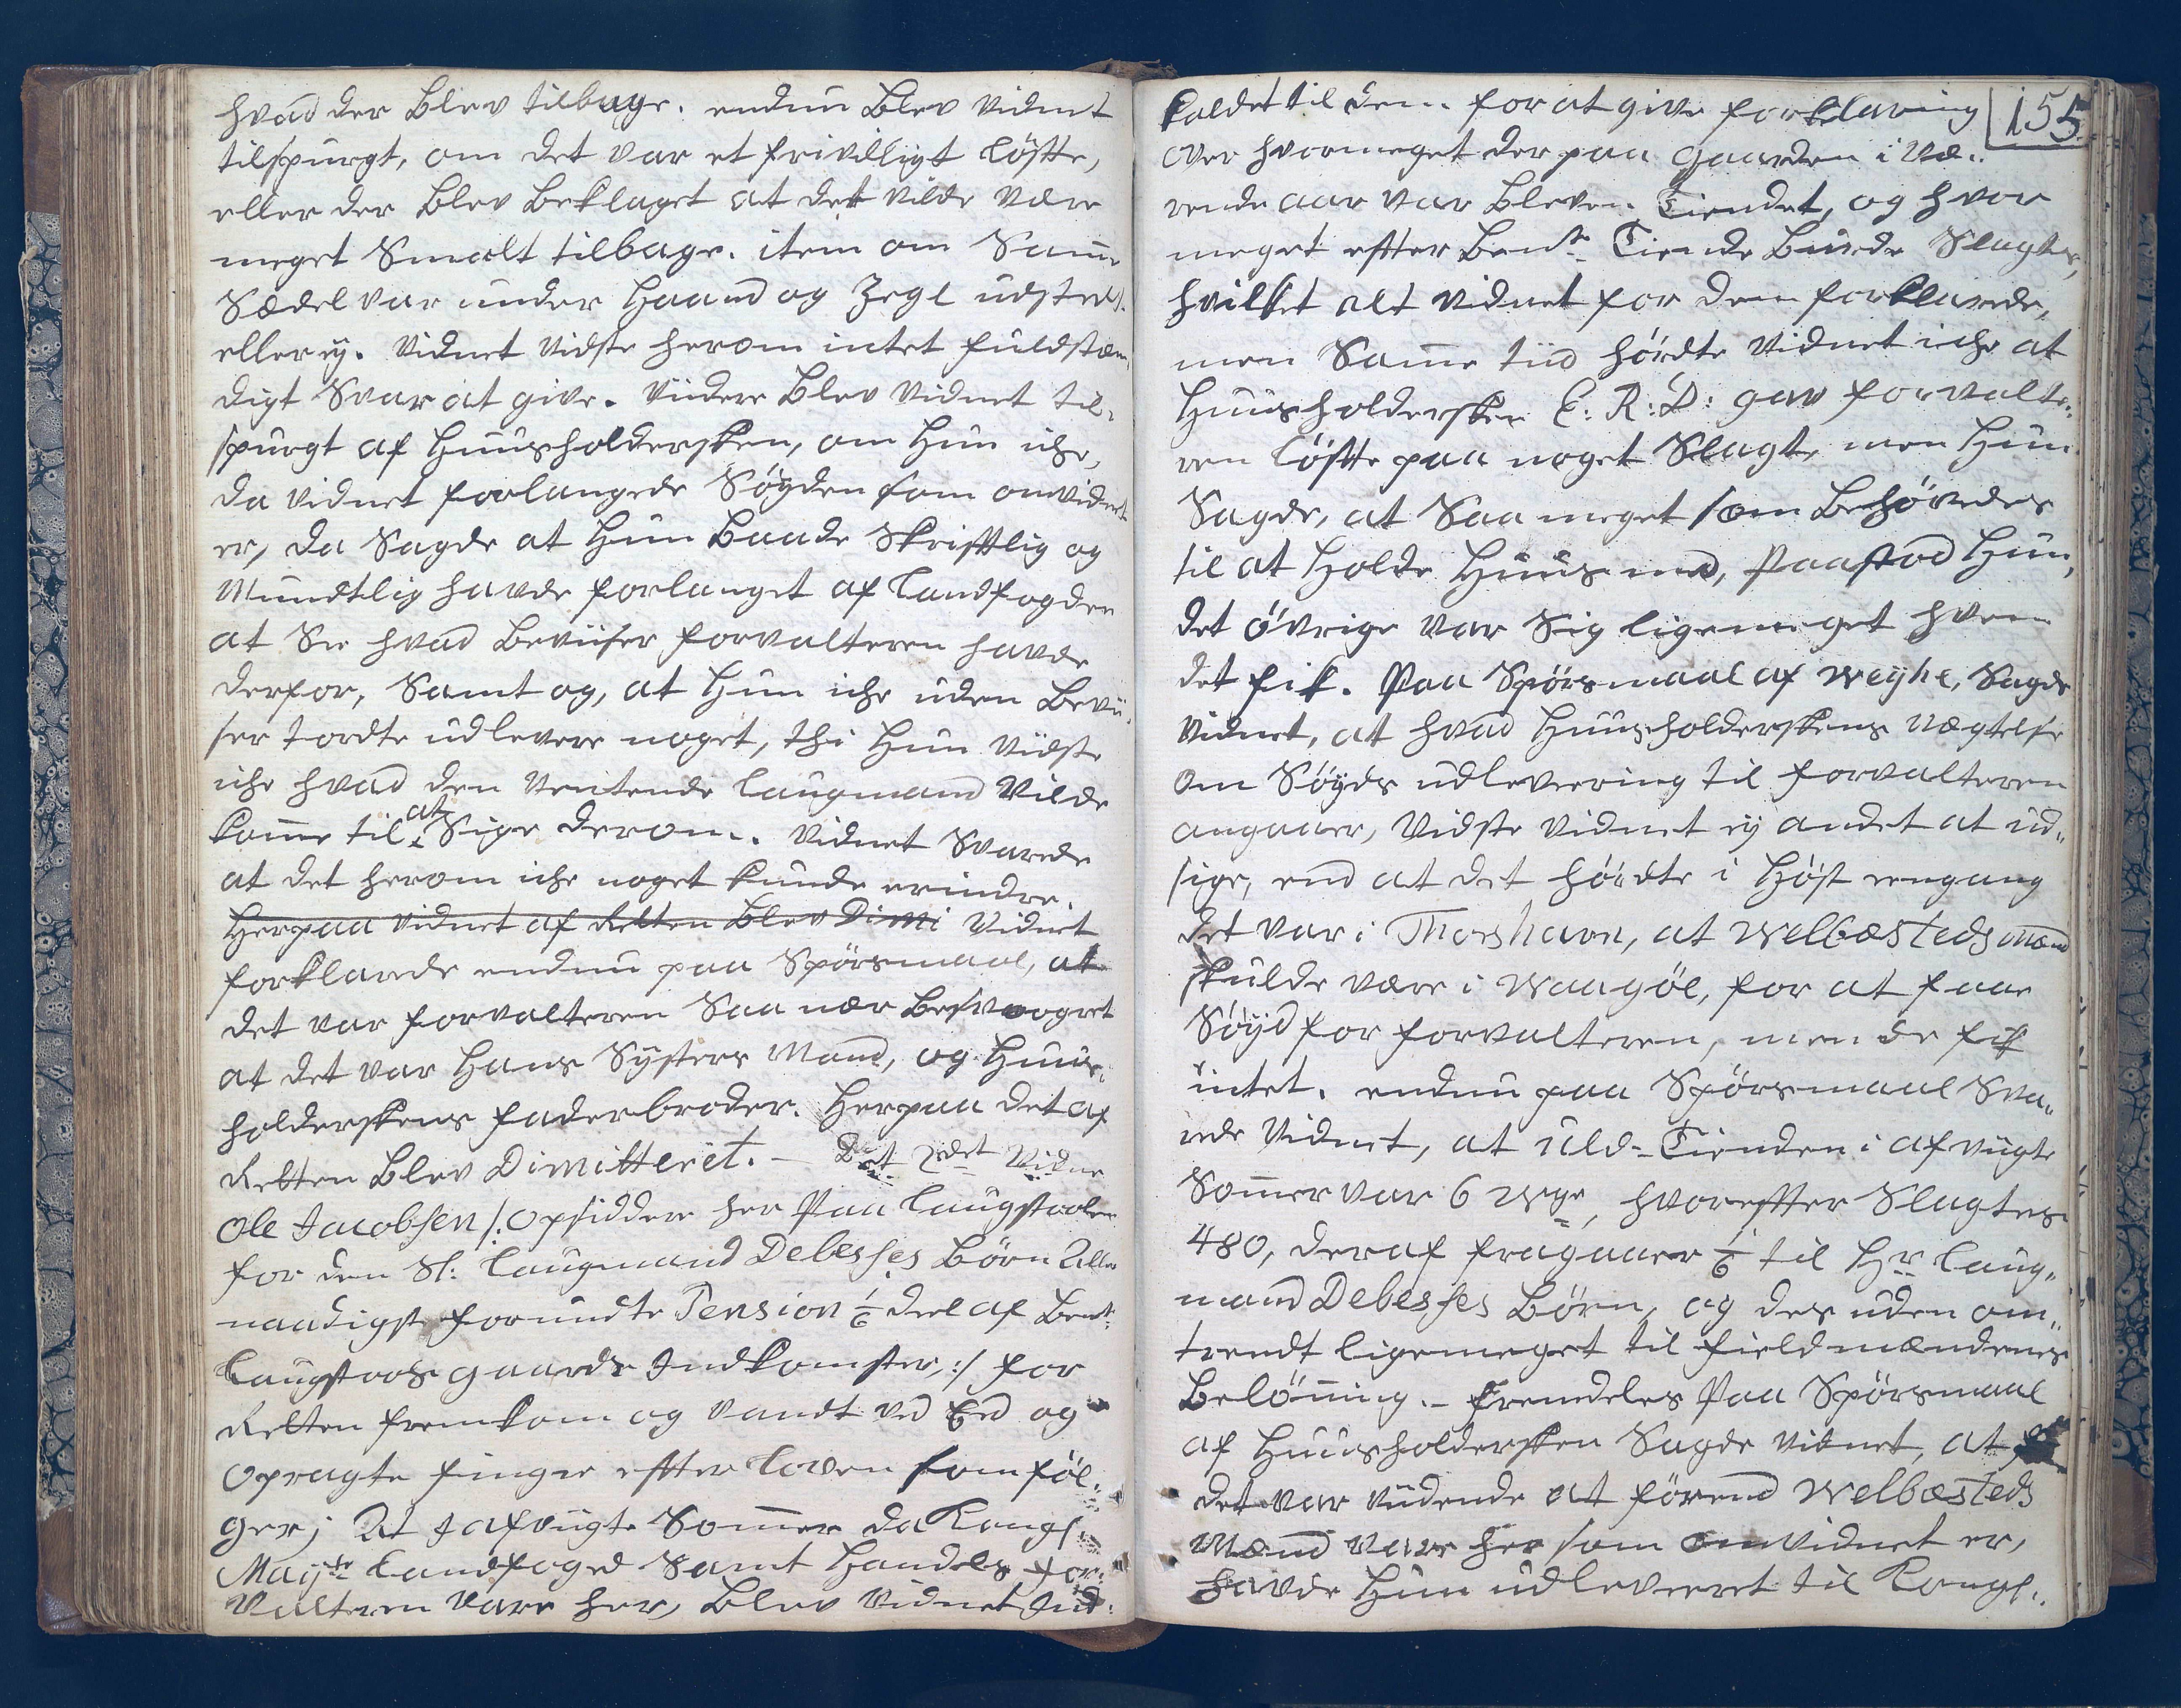 hvad der blev tilbage. endnu blev vidnet
tilspurgt, om det var et frivilligt Löfte,
eller der blev beklaget at det vilde være
meget Smalt tilbage. item om Samme
Sædel var under Haand og Zegl udsted
eller ej. Vidnet vidste herom intet fuldstæn,
digt Svar at give. Viidere blev vidnet til,
spurgt af Huusholdersken, om Hun iche,
da vidnet forlangede Söyden som omvidnet
er, da Sagde at Hun baade Skrifftlig og
Mundtlig havde forlanget af Landfogden
at See hvad Beviiser forvalteren havde
derfor, Samt og, at Hun iche uden Bevii,
ser tordte udlevere noget, thi Hun vidste
iche hvad den ventende Laugmand vilde
komme til at Sige derom. Vidnet Svarede
at det herom iche noget kunde erindre.
Herpaa vidnet af Retten blev Dimi Vidnet
forklarede endnu paa Spörsmaal, at
det var forvalteren Saa nær besvogret
at det var Hans Systers Mand, og Huus,
holderskens faderbroder. Herpaa det af
Retten blev Dimitteret. – Det 2det Vidne
Ole Jacobsen /: Opsidder her paa Laugstoolen
for den Sl: Laugmand Debesses Börn Aller
naadigst forundte Pension 1/6 deel af bemt:
Laugstools gaards Indkomster, :/ for
Retten fremkom og vandt ved Eed og
opragte finger effter Loven som föl,
ger; At I afvigte Sommer da Kongl:
Mayts Landfoged Samt Handels For,
valteren vare her, blev vidnet Ind,
155
kaldet til dem for at give forklaring
over hvormeget der paa Gaarden i væ,,
rende aar var bleven Tiendet, og hvor
meget effter bemte Tiende burde Slagtes,
hvilket alt vidnet for dem forklarede,
men Samme tiid hördte vidnet iche at
Huusholdersken E: R: D: gav forvalte,,
ren Löfte paa noget Slagt, men Hun
Sagde, at Saa meget som behövedes
til at Holde Huus med, Paastod Hun,
det övrige var Sig ligemeget hvem
det fik. Paa Spörsmaal af Weyhe, Sagde
Vidnet, at hvad Huusholderskens nægtelse
om Söyds udlevering til forvalteren
angaaer, vidste vidnet ej andet at ud,,
sige, end at det hördte i Höst eengang
det var i Thorshavn, at Welbæsteds mænd
skulde være i Waagöe, for at faae
Söyd for forvalteren, men de fik
intet. endnu paa Spörsmaal Sva,,
rede vidnet, at Uld-Tienden i afvigte
Sommer var 6 Wge, hvoreffter Slagtes
480, deraf fragaaer 1/6 til Hr Laug,,
mand Debesses Börn, og des uden om,,
trendt ligemeget til Fieldmændenes
belönning. – Fremdeles Paa Spörsmaal
af Huusholdersken Sagde vidnet, at
det var vidende at förend Welbæsteds
Mænd vare her som omvidnet er,
havde Hun udleveret til Kongl: